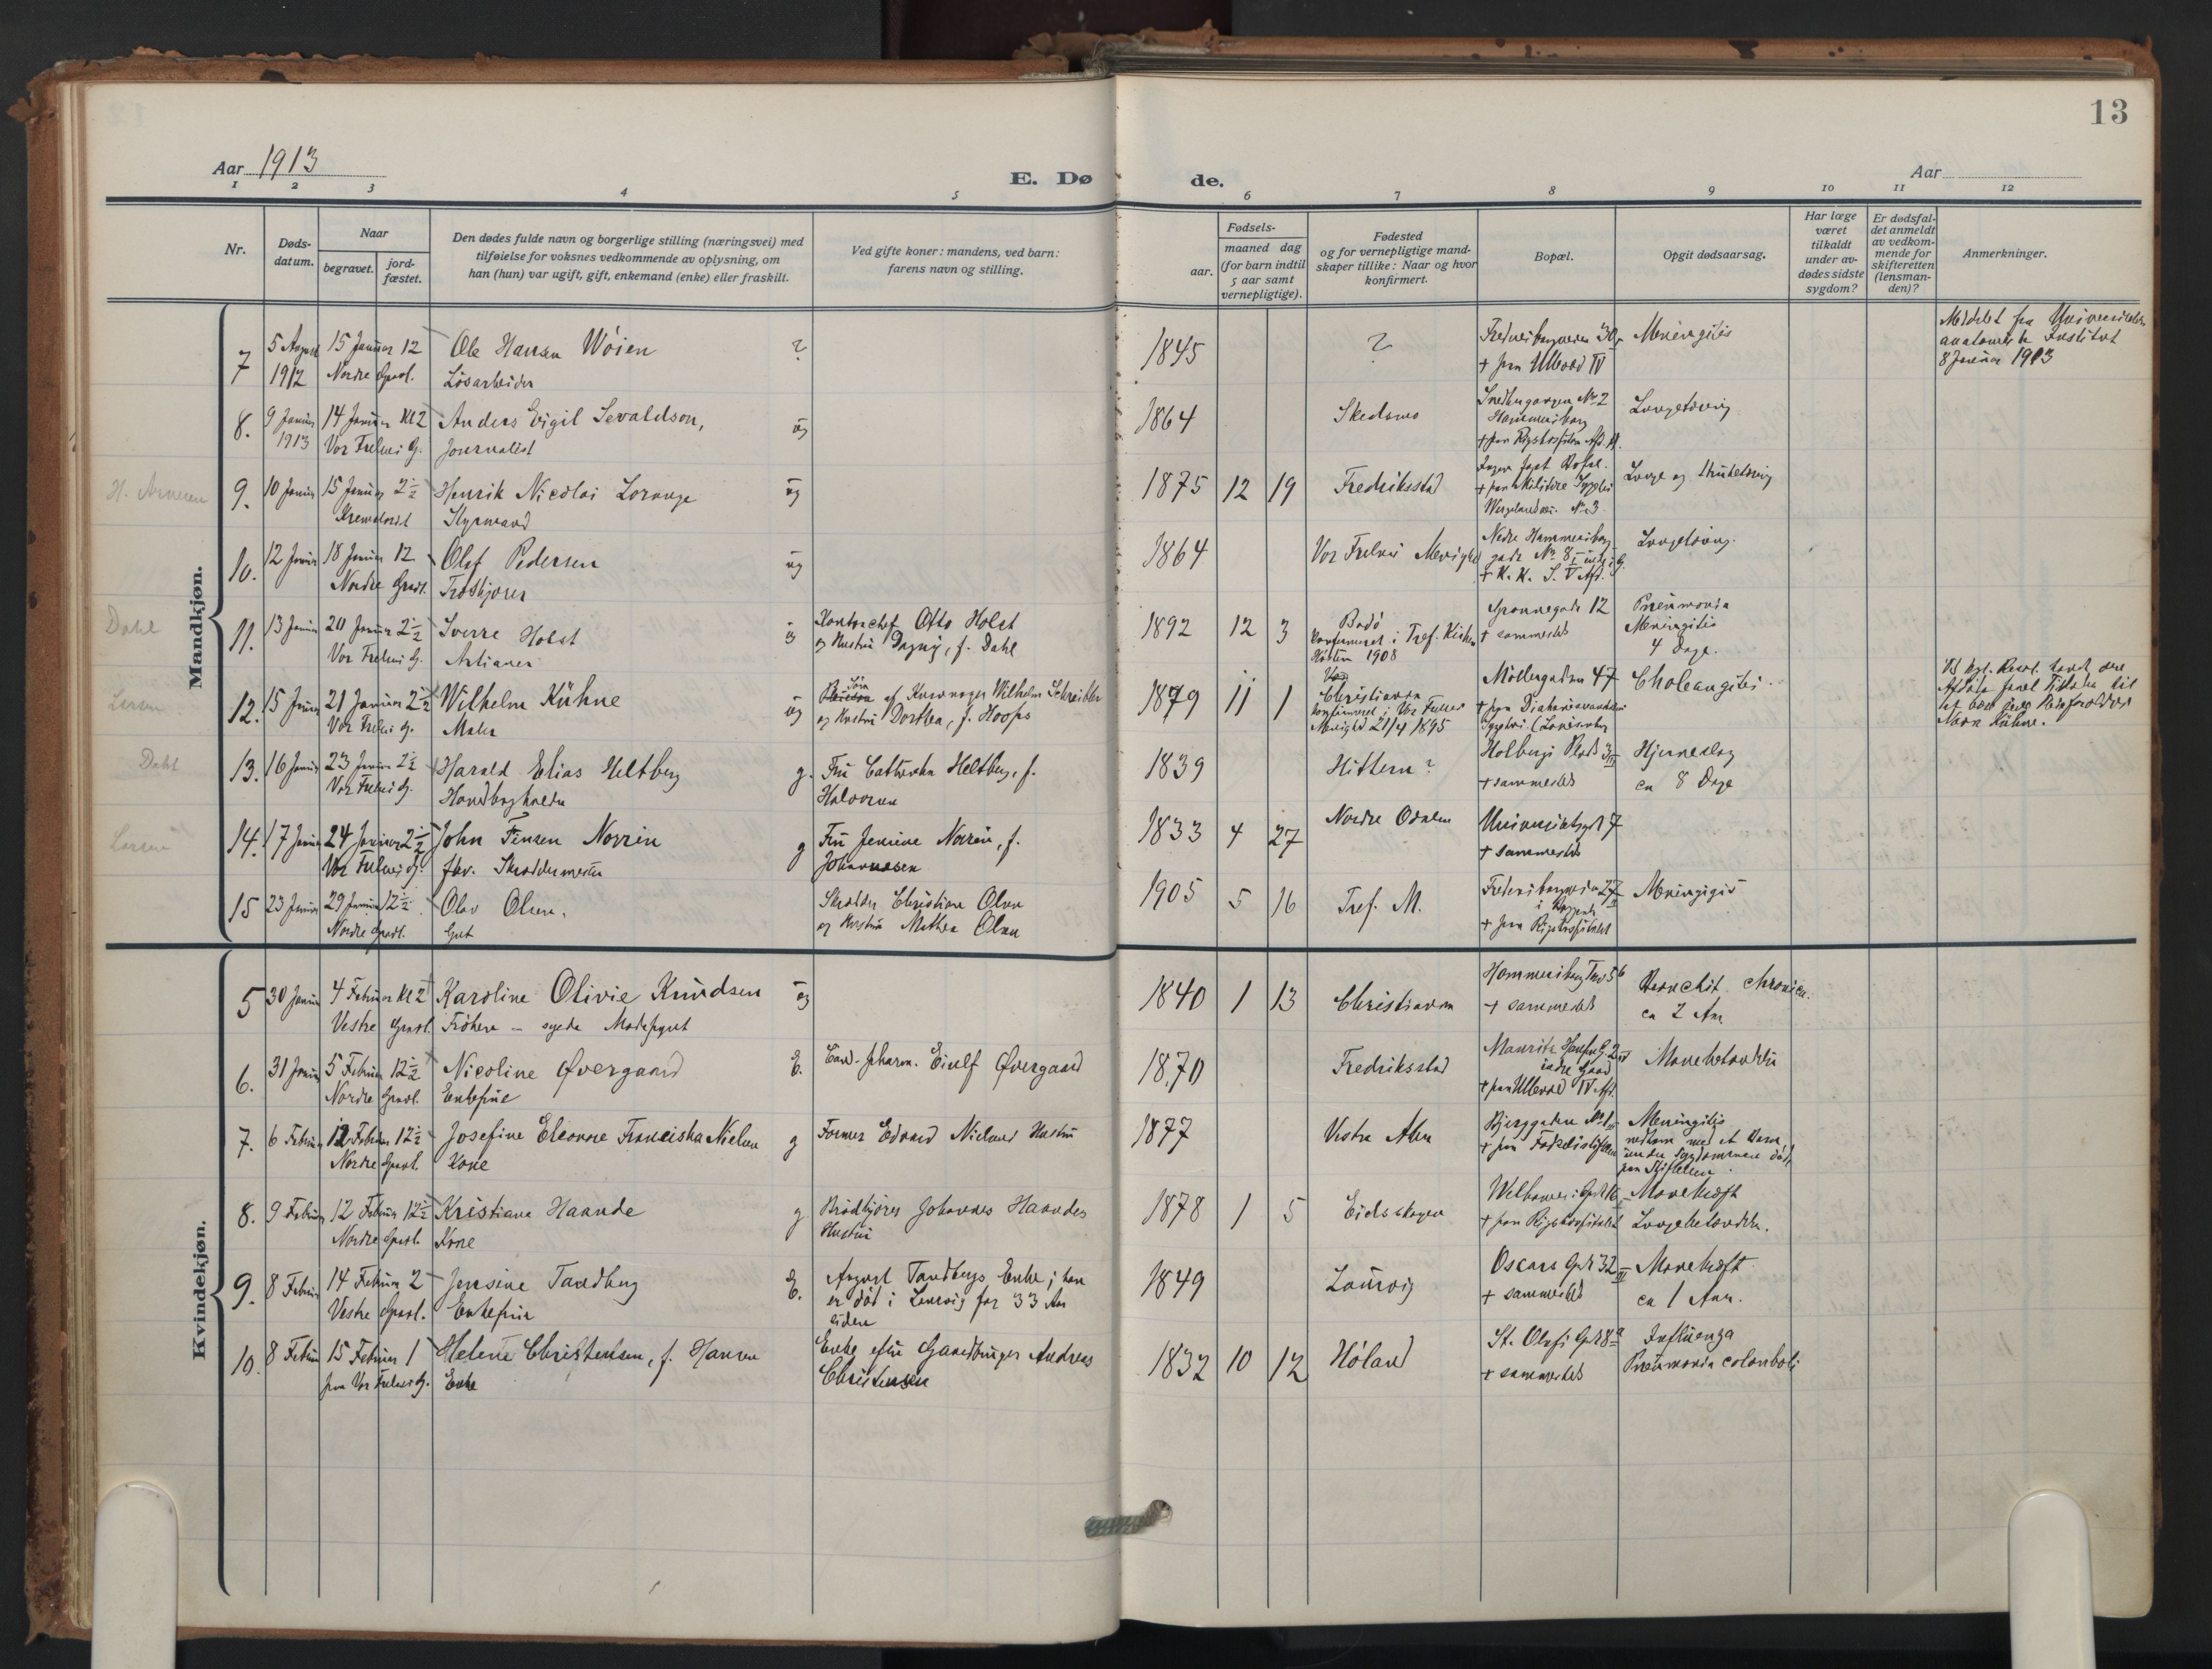 13
Aar 1913
E. Dø
de.
Aar
1 2 3 4 5 6 7 8 9 10 11 12
Nr.
Døds-
datum.
Naar
begravet.
jord-
fæstet.
Den dødes fulde navn og borgerlige stilling (næringsvei) med
tilføielse for voksnes vedkommende av oplysning, om
han (hun) var ugift, gift, enkemand (enke) eller fraskilt.
Ved gifte koner: mandens, ved barn:
farens navn og stilling.
Fødsels-
aar.
maaned dag
(for barn indtil
5 aar samt
vernepligtige).
Fødested
og for vernepligtige mand-
skaper tillike: Naar og hvor
konfirmert.
Bopæl.
Opgit dødsaarsag.
Har læge
været
tilkaldt
under av-
dødes sidste
sygdom?
Er dødsfal-
det anmeldt
av vedkom-
mende for
skifteretten
(lensman-
den)?
Anmerkninger.
Mandkjøn.
7 5 August 15 Januar 12 Ole Hansen Wöien ? 1845 ? Meningitis
1912 Nordre Gravl. Lösarbeider + paa Ullevaal IV
Meddelt fra Universitetets
anatomiske Institut
8 Januar 1913
8. 9 Januar 14 Januar Kl 2 Anders Eigil Sevaldson, ug 1864 Skedsmo No 2 Lungetæring
1913 Vor Frelsers G. Journalist Hammersborg
+ paa Rigshospitalets Afd. A.
H. Arnesen
9. 10 Januar 15 Januar 2½ Henrik Nicolai Lorange ug 1875 12 19 Fredriksstad Ingen fast Bopæl. Lunge og Strubetæring
Krematoriet Styrmand + paa Militære Sygehus
Wergelandsvei. No 3
10. 12 Januar 18 Januar 12 Olef Pedersen ug 1864 Vor Frelsers Menighed Nedre Hammersborg Lungetæring.
Nordre Gravl. gade No 8
+ K. K. S. V Afd.
Dahl
11. 13 Januar 20 Januar 2½ Sverre Holst ug Kontorchef Otto Holst 1892 12 3 Bodö Grönnegade 12 Pneumonia
Vor Frelsers G. Artianer og Hustru Dagny, f. Dahl konfirmeret i Tref. Kirken + sammesteds Meningitis
Hösten 1908 4 Dage.
Larsen
12. 15 Januar 21 Januar 2½ Wilhelm Kühne ug Sön af Wilhelm Schreibler 1879 11 1 Christiania Möllergaden 47 Choleangitis
Vor Frelsers G. Maler og Hustru Dorthea, f. Hoops konfirmeret i Vor Frelsers + paa Diakonissernes
Menighed 21/4 1895 Sygehus (Lovisenberg
Dahl
13. 16 Januar 23 Januar 2½ Harald Elias Heltberg g. Fru Cathrinka Heltberg, f. 1839 Hittern? Holbergs Plads 3 Hjerneslag
Vor Frelsers G. Handbogholder Halvorsen + sammesteds ca 8 Dage
Larsen
14. 17 Januar 24 Januar 2½ John Finsen Norrin g Fru Jensine Norrin, f. 1833 4 27 Nordre Odalen Universitetsgd 7
Vor Frelsers G. fhv. Skræddermester Johannesen + sammesteds
15 23 Januar 29 Januar 12½ Olav Olsen. Skrædder Christian Olsen 1905 5 16 Tref. M. Fredensborgveien 27 Meningitis
Nordre Gravl. Gut og Hustru Mathea Olsen + paa Rigshospitalet
Kvindekjøn.
5 30 Januar 4 Februar Kl 2 Karoline Olivie Knudsen ug 1840 1 13 Christiania Hammersborg Torv 5 Bronchit. chronica.
Vestre Gravl. Fröken - syede Modepynt + sammesteds ca 2 Aar
6. 31 Januar 5 Februar 12½ Nicoline Øvergaard E. Cand. pharm. Eiulf Øvergaard 1870 Fredriksstad Mauritz Hansens G. 2 Mavebetændelse
Nordre Gravl. Enkefrue indre Gaard
+ paa Ullevaal IV Afd.
7. 6 Februar 12 Februar 12½ Josefine Eleonore Franciska Nielsen g Former Edvard Nielsens Hustru 1877 Vestre Aker Bjerggaden Meningitis
Nordre Gravl. Kone + paa Födselsstiftelsen nedkom med et Barn
under Sygdommen död
paa Stiftelsen.
8. 9 Februar 12 Februar 12½ Kristiane Haande g Brödkjörer Johannes Haandes 1878 1 5 Eidsskogen Welhavens Gd 16 Mavekræft
Nordre Gravl. Kone Hustru + paa Rigshospitalet Lungebetændelse.
9. 8 Februar 14 Februar 2 Jensine Tandberg E. August Tandbergs Enke; han 1849 Laurvig Oscars Gd 32 Mavekræft
Vestre Gravl. Enkefrue er död i Laurvig for 33 Aar + sammesteds ca 1 Aar.
siden
10. 8 Februar 15 Februar 1 Helene Christensen, f. Hansen Enke efter Gaardbruger Andreas 1832 10 12 Höland St. Olafs Gd 8a Influenza
paa Vor Frelsers G. Enke Christensen + sammesteds Pneumonia